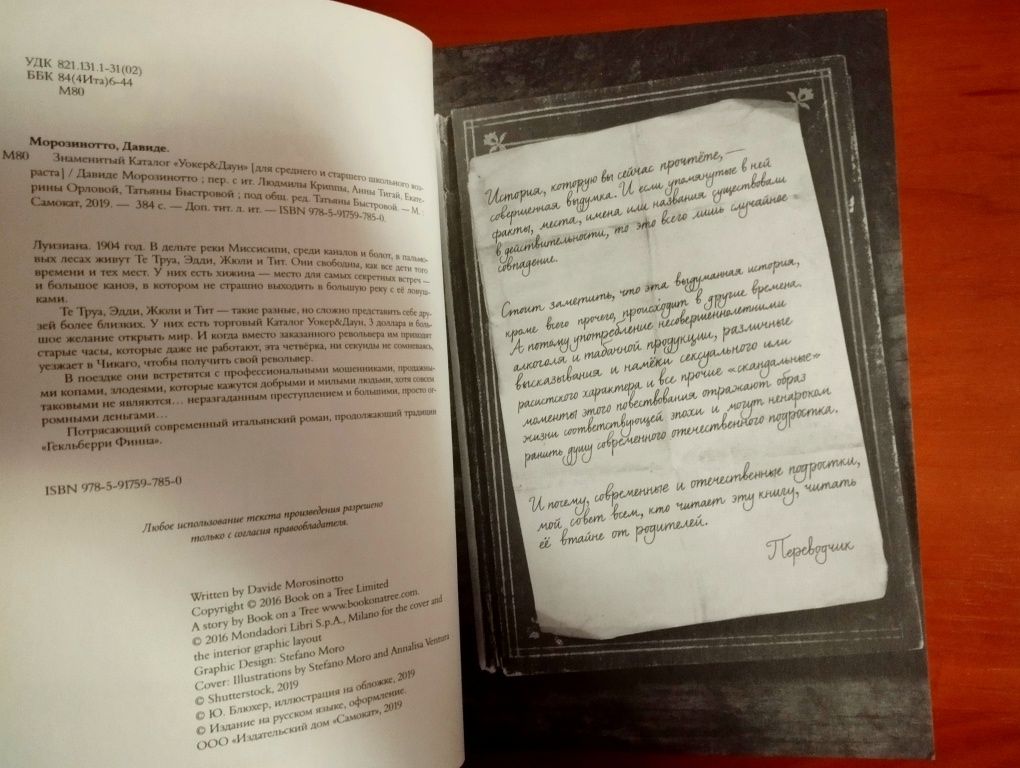 УДК 821.131.1-31(02)
ББК 84(4Ита)6-44
М80
Морозинотто, Давиде.
М80 Знаменитый Каталог «Уокер&Даун» [для среднего и старшего школьного воз-
раста] / Давиде Морозинотто ; пер. с ит. Людмилы Криппы, Анны Тигай, Екате-
рины Орловой, Татьяны Быстровой ; под общ. ред. Татьяны Быстровой. — М.
Самокат, 2019. — 384 с. — Доп. тит. л. ит. — ISBN 978-5-91759-785-0.
Луизиана. 1904 год. В дельте реки Миссисипи, среди каналов и болот, в пальмо-
вых лесах живут Те Труа, Эдди, Жюли и Тит. Они свободны, как все дети того
времени и тех мест. У них есть хижина — место для самых секретных встреч —
и большое каноэ, в котором не страшно выходить в большую реку с её ловуш-
ками.
Те Труа, Эдди, Жюли и Тит — такие разные, но сложно представить себе дру-
зей более близких. У них есть торговый Каталог Уокер&Даун, 3 доллара и боль-
шое желание открыть мир. И когда вместо заказанного револьвера им приходят
старые часы, которые даже не работают, эта четвёрка, ни секунды не сомневаясь,
уезжает в Чикаго, чтобы получить свой револьвер.
В поездке они встретятся с профессиональными мошенниками, продажны-
ми копами, злодеями, которые кажутся добрыми и милыми людьми, хотя совсем
таковыми не являются… неразгаданным преступлением и большими, просто ог-
ромными деньгами…
Потрясающий современный итальянский роман, продолжающий традиции
«Гекльберри Финна».
ISBN 978-5-91759-785-0
Любое использование текста произведения разрешено
только с согласия правообладателя.
Written by Davide Morosinotto
Copyright © 2016 Book on a Tree Limited
A story by Book on a Tree www.bookonatree.com.
© 2016 Mondadori Libri S.p.A., Milano for the cover and
the interior graphic layout
Graphic Design: Stefano Moro
Cover: Illustrations by Stefano Moro and Annalisa Ventura
© Shutterstock, 2019
© Ю. Блюхер, иллюстрация на обложке, 2019
© Издание на русском языке, оформление.
ООО «Издательский дом «Самокат», 2019
История, которую вы сейчас прочтёте, —
совершенная выдумка. И если упомянутые в ней
факты, места, имена или названия существовали
в действительности, то это всего лишь случайное
совпадение.
Стоит заметить, что эта выдуманная история,
кроме всего прочего, происходит в другие времена.
А потому употребление несовершеннолетними
алкоголя и табачной продукции, различные
высказывания и намёки сексуального или
расистского характера и все прочие «скандальные»
моменты этого повествования отражают образ
жизни соответствующей эпохи и могут ненароком
ранить душу современного отечественного подростка.
И посему, современные и отечественные подростки,
мой совет всем, кто читает эту книгу, читать
её втайне от родителей.
Переводчик